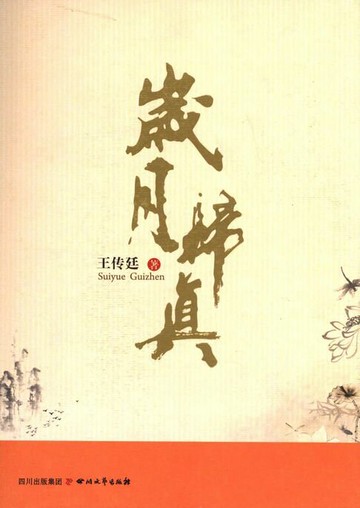 歲月
歸真
王传廷 著
Suiyue Guizhen
四川出版集团 四川文艺出版社